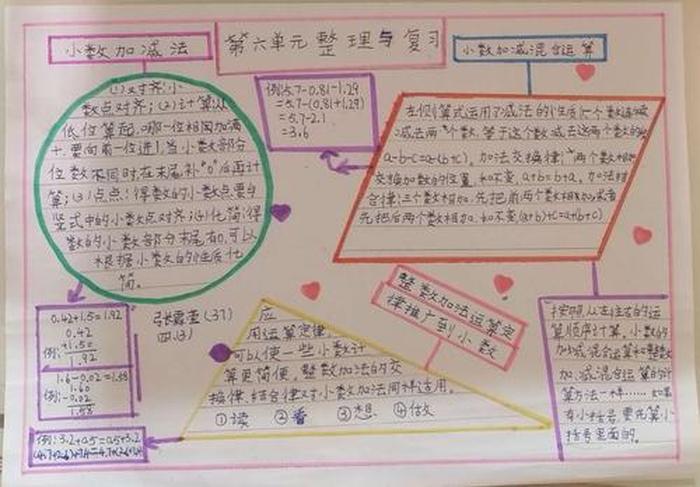 小数加减法
第六单元整理与复习
小数加减混合运算
(1)对齐:小
数点对齐;(2)计算:从
低位算起,哪一位相加满
十,要向前一位进1,当小数部分
位数不同时,在末尾补"0"后再计
算;(3)点点:得数的小数点要与
竖式中的小数点对齐;(4)化简:得
数的小数部分末尾有0,可以
根据小数的性质化
简。
例:5.7-0.81-1.29
=5.7-(0.81+1.29)
=5.7-2.1
=3.6
左侧算式运用了减法的性质:一个数连续
减去两个数,等于这个数减去这两个数的和
a-b-c=a-(b+c)。加法交换律:两个数相加
交换加数的位置,和不变,a+b=b+a。加法结
合律:三个数相加,先把前两个数相加或者
先把后两个数相加,和不变(a+b)+c=a+(b+c)
整数加法运算定
律推广到小数
0.42+1.5=1.92
0.42
例:+1.50
1.92
1.6-0.02=1.58
1.60
例:-0.02
1.58
(37)
四(3)
应
用运算定律,
可以使一些小数计
算更简便,整数加法的交
换律、结合律对小数加法同样适用。
①读 ②看 ③想 ④做
按照从左往右的运
算顺序计算。小数的
加、减混合运算和整数
加、减混合运算的计
算方法一样……如果
有小括号,要先算小
括号里面的。
例:3.2+0.5=0.5+3.2